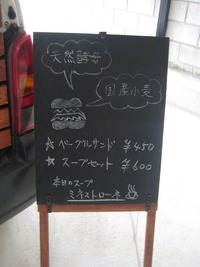 天然酵母
国産小麦
☆ベーグルサンド ¥450
☆スープセット ¥600
本日のスープ
ミネストローネ